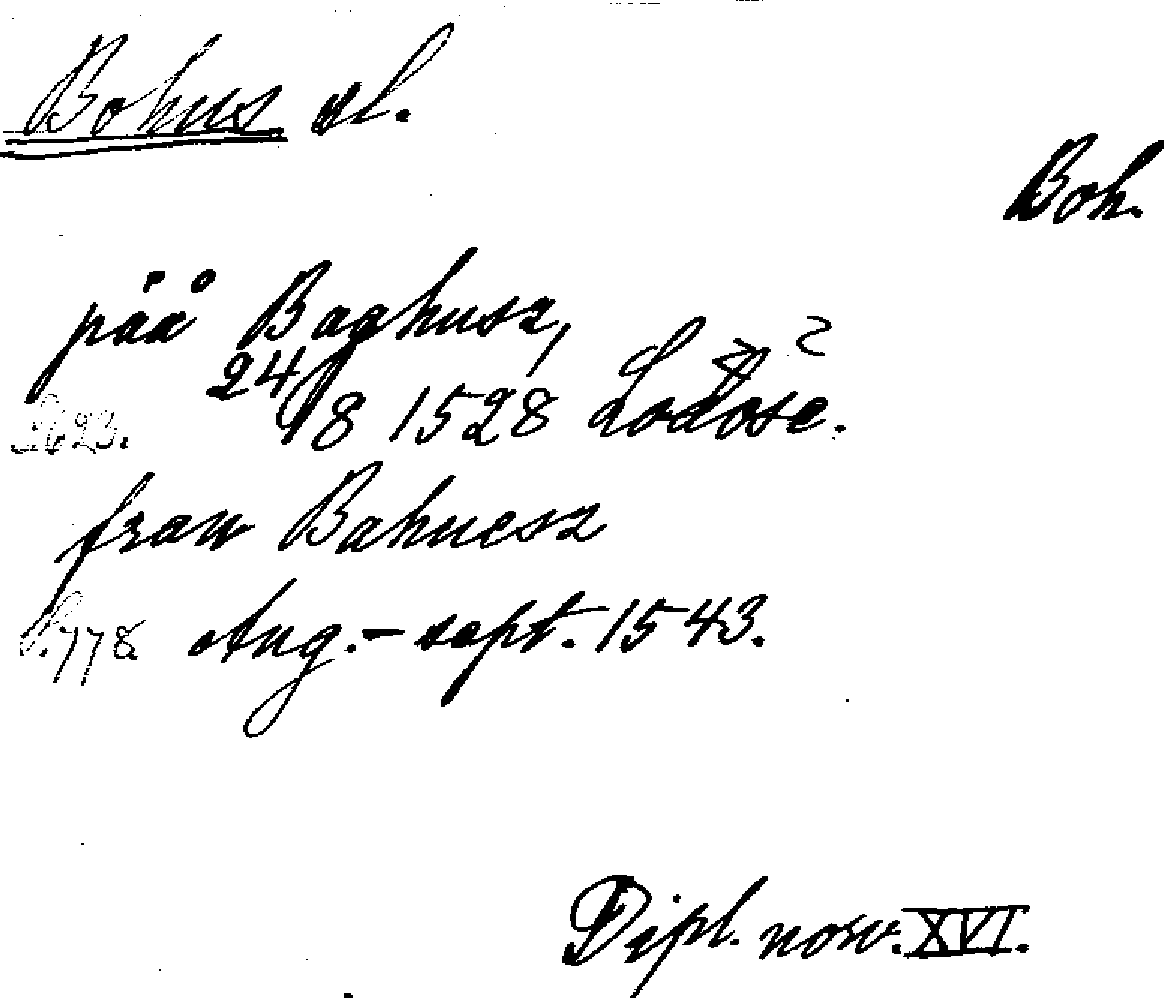 Bohus sl.
Boh.
påå Baghusz,
S. 623. 24/8 1528 Lodose.
fran Bahuesz
S. 778 Aug.- sept. 1543.
Dipl. norv. XVI.